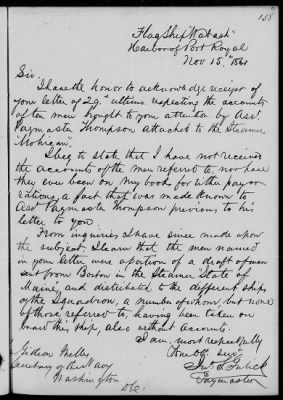 138
Flag Ship "Wabash"
Harbor of Port Royal
Nov 15th 1861
Sir.
I have the honor to acknowledge receipt of
your letter of 29th ultimo, respecting the accounts
of ten men brought to your attention by Asst
Paymaster Thompson attached to the Steamer
"Mohican".
I beg to state that I have not received
the accounts of the men referred to, nor have
they ever been on my book for either pay or
rations, a fact that was made known to
Asst Paymaster Thompson previous to his
letter to you.
From inquiries I have since made upon
the subject, I learn that the men named
in your letter were a portion of a draft of men
sent from Boston in the Steamer "State of
Maine", and distributed to the different ships
of the Squadron, a number of whom, but none
of those referred to, having been taken on
board this ship, also without accounts.
I am, most respectfully
Your Obt Servt
Jno. S.
Paymaster
Gideon Welles
Secretary of the Navy
Washington
D.C.